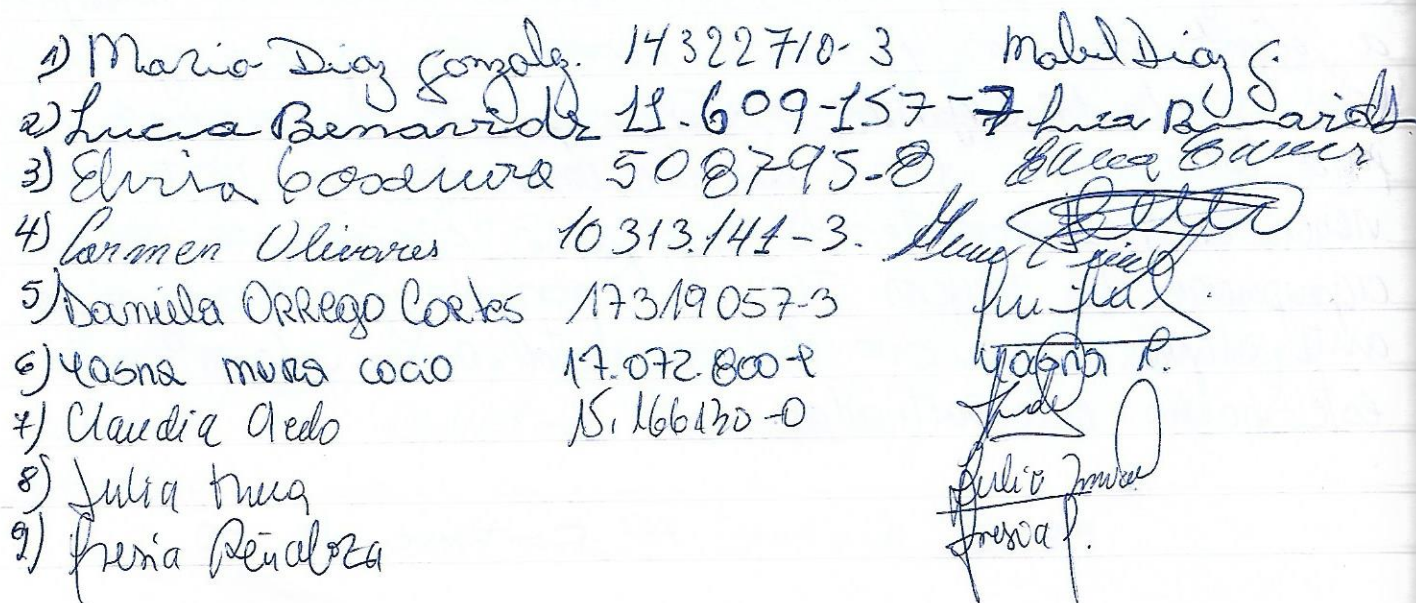 1) Maria Diaz Gonzalz. 14322710-3 Mabel Diaz G.
2) Lucia Benavidz 11.609-157-7
3) Elvira Casanova 508795-8
4) Carmen Olivares 10313.141-3.
5) Daniela ORRego Cortes 17319057-3
6) Yasna mura cocio 17.072.800- Yasna P.
7) Claudia Aedo 15.166130-0
8) Julia
9) Fresia Peñaloza Fresia P.